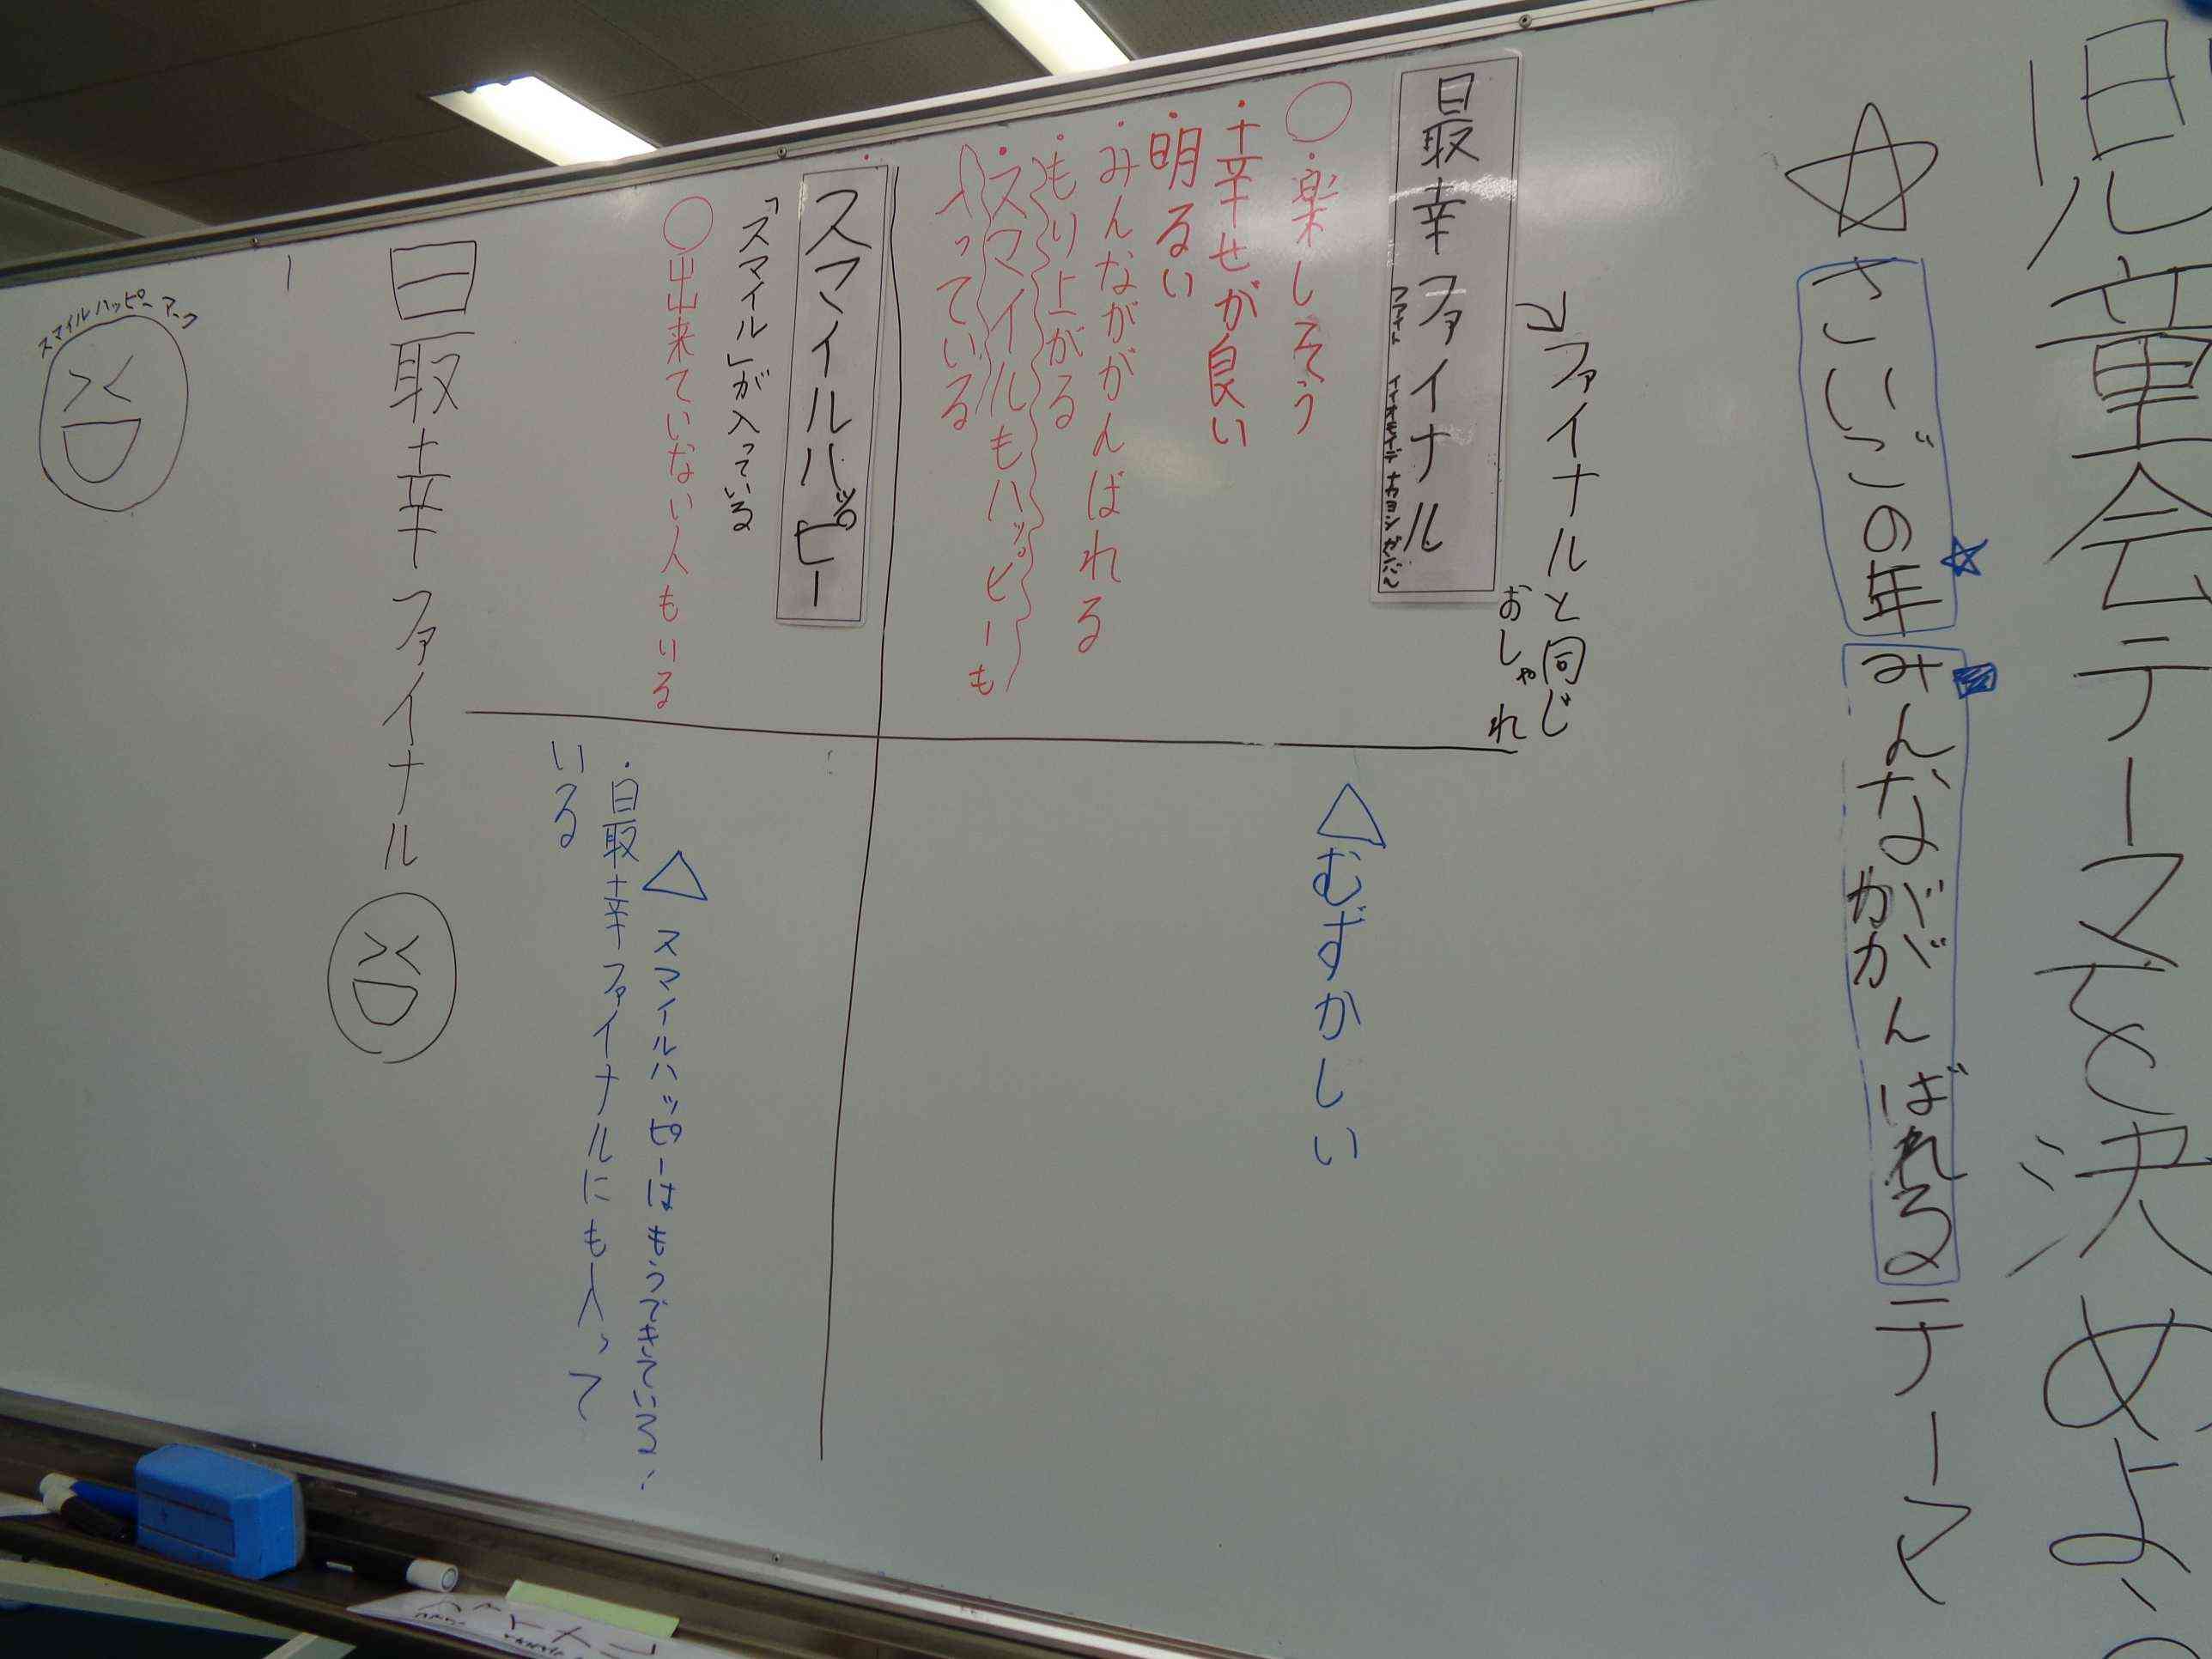 児童会テーマを決めよう
☆さいごの年みんなががんばれるテーマ
ファイナルと同じ
おしゃれ
最幸ファイナル
○・楽しそう
・幸せが良い
・明るい
・みんなががんばれる
・もり上がる
・スマイルもハッピーも
入っている
△むずかしい
スマイルハッピー
「スマイル」が入っている
○出出来ていない人もいる
△スマイルハッピーはもうできている
・最幸ファイナルにも入って
いる
最幸ファイナル
スマイルハッピーマーク